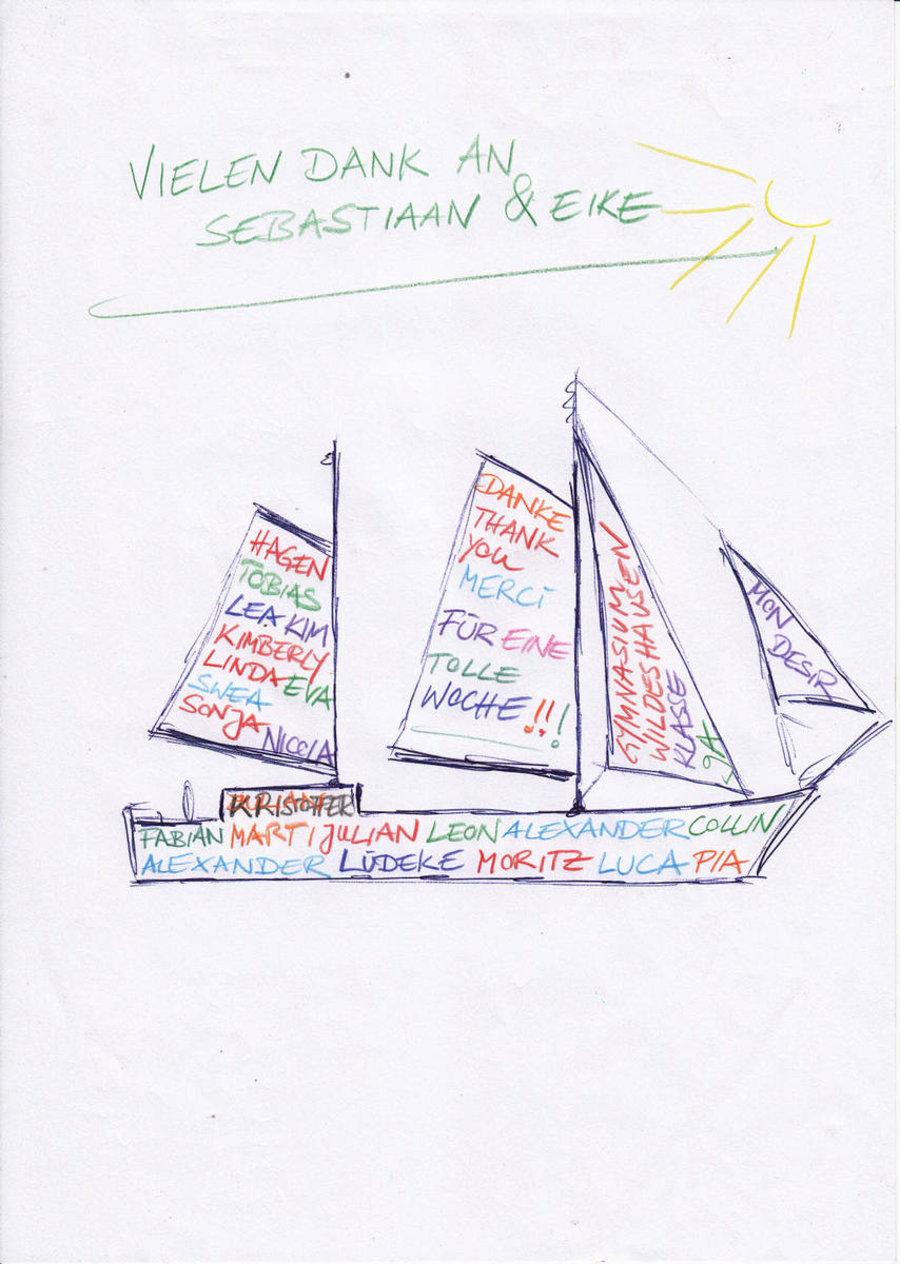 VIELEN DANK AN
SEBASTIAAN & EIKE
HAGEN
TOBIAS
LEA KIM
KIMBERLY
LINDA EVA
SWEA
SONJA
NICOLA
DANKE
THANK
YOU
MERCI
FÜR EINE
TOLLE
WOCHE!!!
GYMNASIUM
WILDESHAUSEN
KLASSE
9A
MON
DESIR
KRISTOFFER
FABIAN MARTI JULIAN LEON ALEXANDER COLLIN
ALEXANDER LÜDEKE MORITZ LUCA PIA